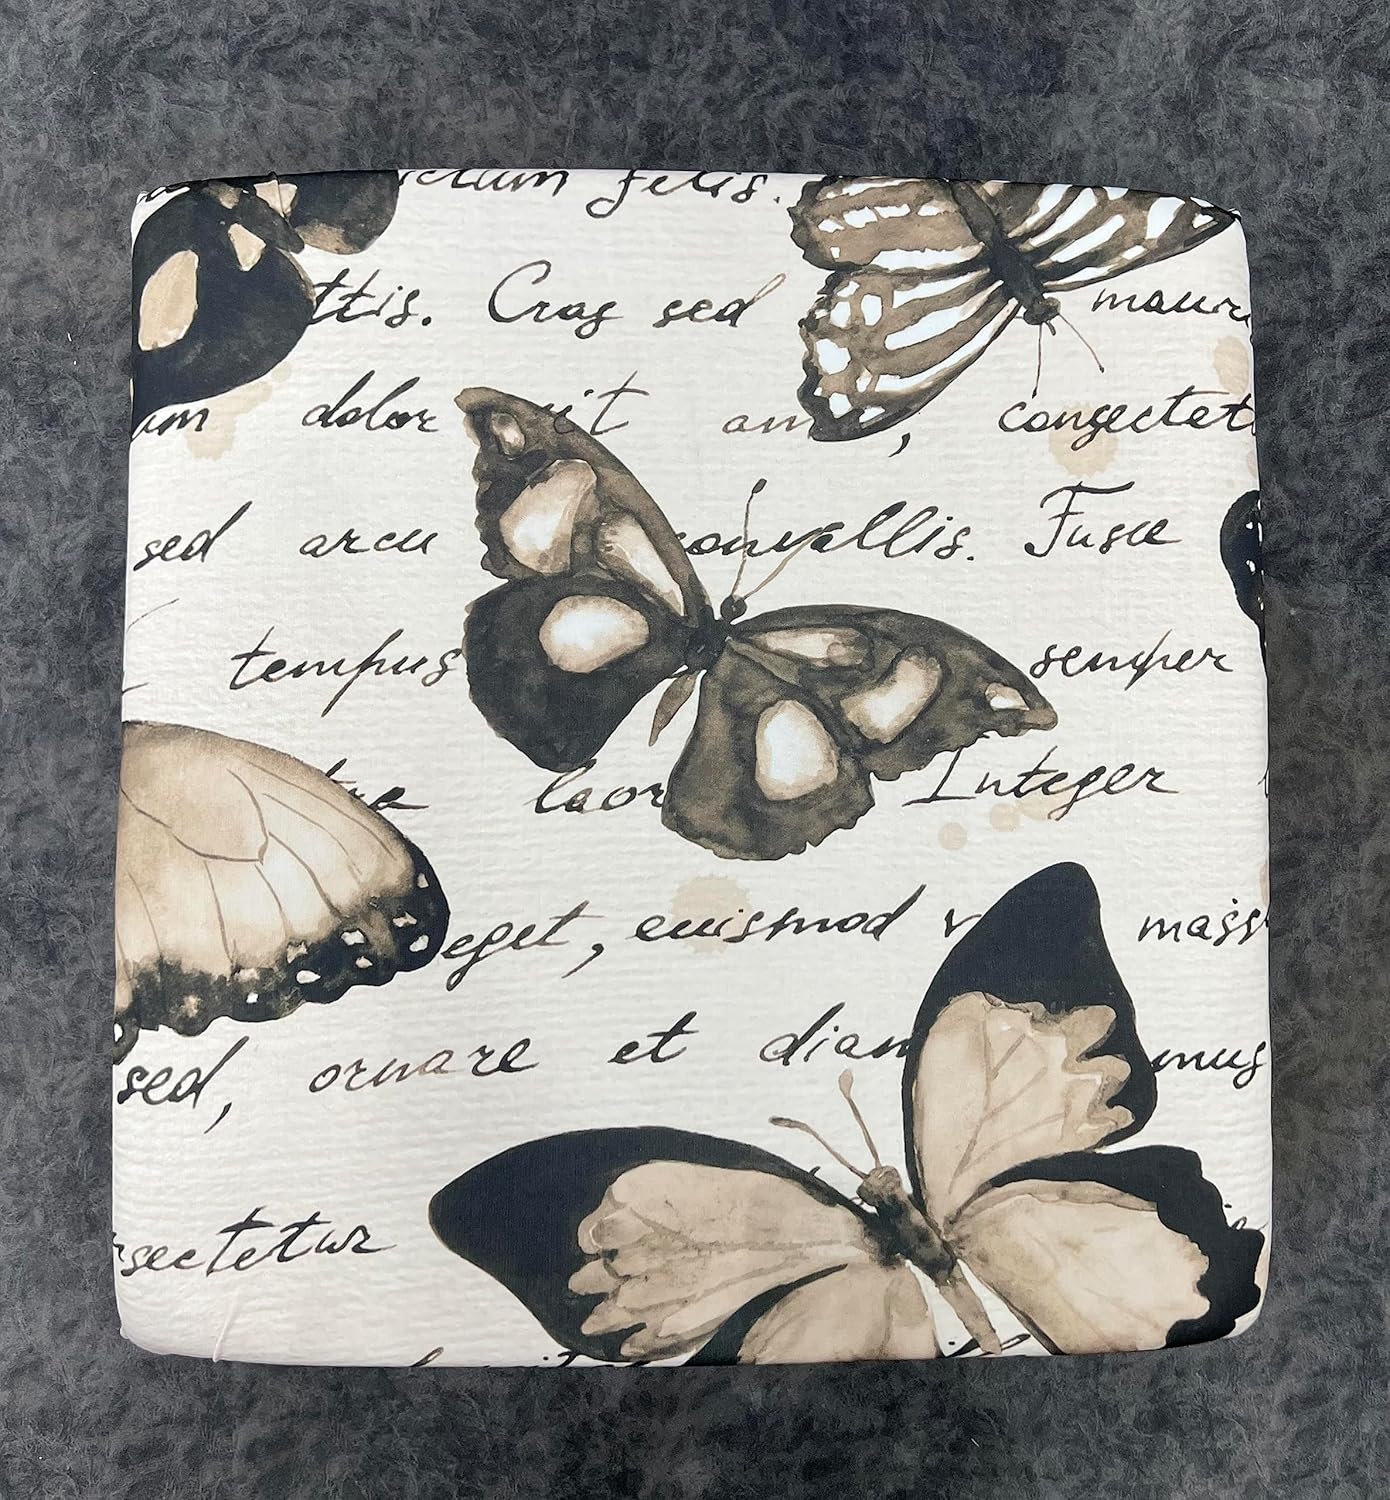 ctum felis.
ttis. Cras sed mauri
um dolor sit am , consectet
sed arcu convallis. Fusce
tempus semper
laor Integer
eget, euismod v mass
sed, ornare et diam mus
sectetur